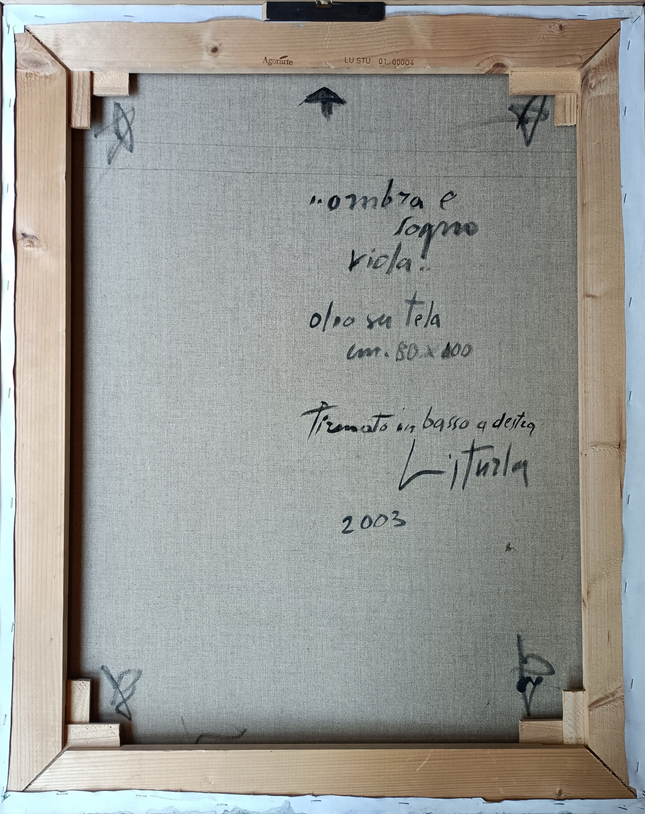 Agorarte LU STU 01 00004
"ombra e
sogno
viola"
olio su tela
cm. 80 x 100
Firmato in basso a destra
2003